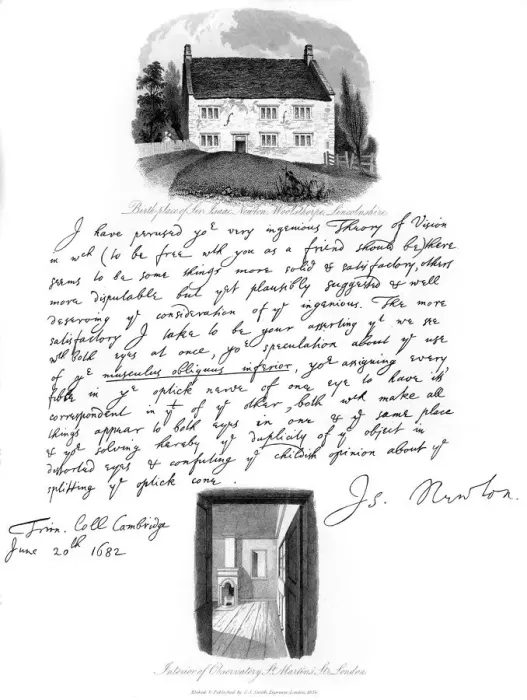 Birthplace of Sir Isaac Newton, Woolsthorpe, Lincolnshire.
I have perused yoʳ very ingenious Theory of Vision
in wch (to be free wth you as a friend should be) there
seems to be some things more solid & satisfactory, others
more disputable but yet plausibly suggested & well
deserving yᵉ consideration of yᵉ ingenious. The more
satisfactory I take to be your asserting yᵗ we see
wth both eyes at once, yoʳ speculation about yᵉ use
of yᵉ musculus obliquus inferior, yoʳ assigning every
fibre in yᵉ optick nerve of one eye to have its
correspondent in yᵗ of yᵉ other, both wch make all
things appear to both eyes in one & yᵉ same place
& yoʳ solving hereby yᵉ duplicity of yᵉ object in
distorted eyes & confuting yᵉ childish opinion about yᵉ
splitting yᵉ optick cone.
Is. Newton.
Trin. Coll Cambridge
June 20th 1682
Interior of Observatory St. Martins Str. London
Etched & Published by C. J. Smith London